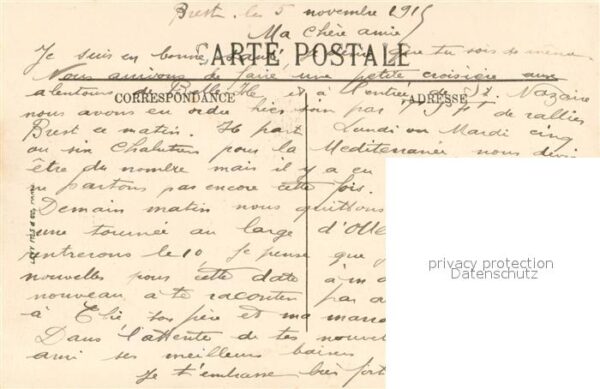 Brest le 5 novembre 1915
Ma Chère amie
Je suis en bonne santé que tu sois de même
CARTE POSTALE
Nous arrivons de faire une petite croisière aux
alentours de et à l'entrée de St. Nazaire
CORRESPONDANCE
ADRESSE
nous avons eu ordre hier soir par de rallier
Brest ce matin. Il part Lundi ou Mardi cinq
ou six Chalutiers pour la Mediterranée nous
être du nombre mais il y a eu
ne partons pas encore cette fois.
Demain matin nous quittons
une tournée au large d'
rentrerons le 10 je pense que
nouvelles pour cette date à m
nouveau à te raconter par
à ton père et ma
Dans l'attente de tes nouvel
ami ses meilleurs baisers
Je t'embrasse bien fort
privacy protection
Datenschutz